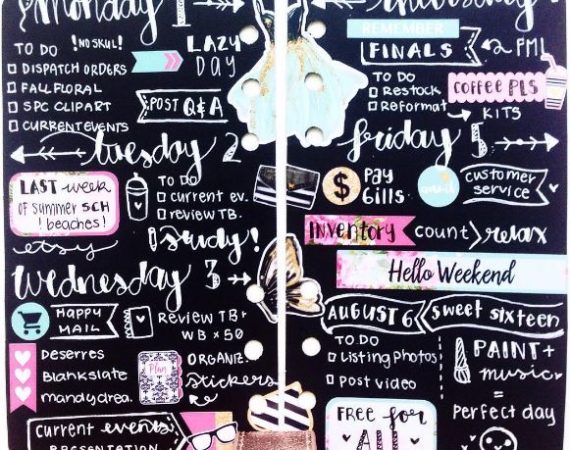 monday 1
TO DO
! NO SKUL!
DISPATCH ORDERS
FALL FLORAL
SPC CLIPART
CURRENT EVENTS
LAZY
DAY
POST Q&A
tuesday 2
LAST week
OF summer SCH
! beaches!
TO DO
current ev.
review TB.
etsy
! study!
Wednesday 3
HAPPY
MAIL
Review TB+
WB x 50
Deserres
Blankslate
mandydrea.
Plan
ORGANIZE
stickers
current events
PRESENTATION
thursday
REMEMBER
FINALS
2 PML
TO DO
Restock
Reformat
KITS
COFFEE PLS
friday 5
$
Pay
Bills
email
customer
service
Inventory count > relax
Hello Weekend
AUGUST 6
sweet sixteen
TO DO
Listing photos
post video
PAINT+
music
=
Perfect day
FREE for
ALL